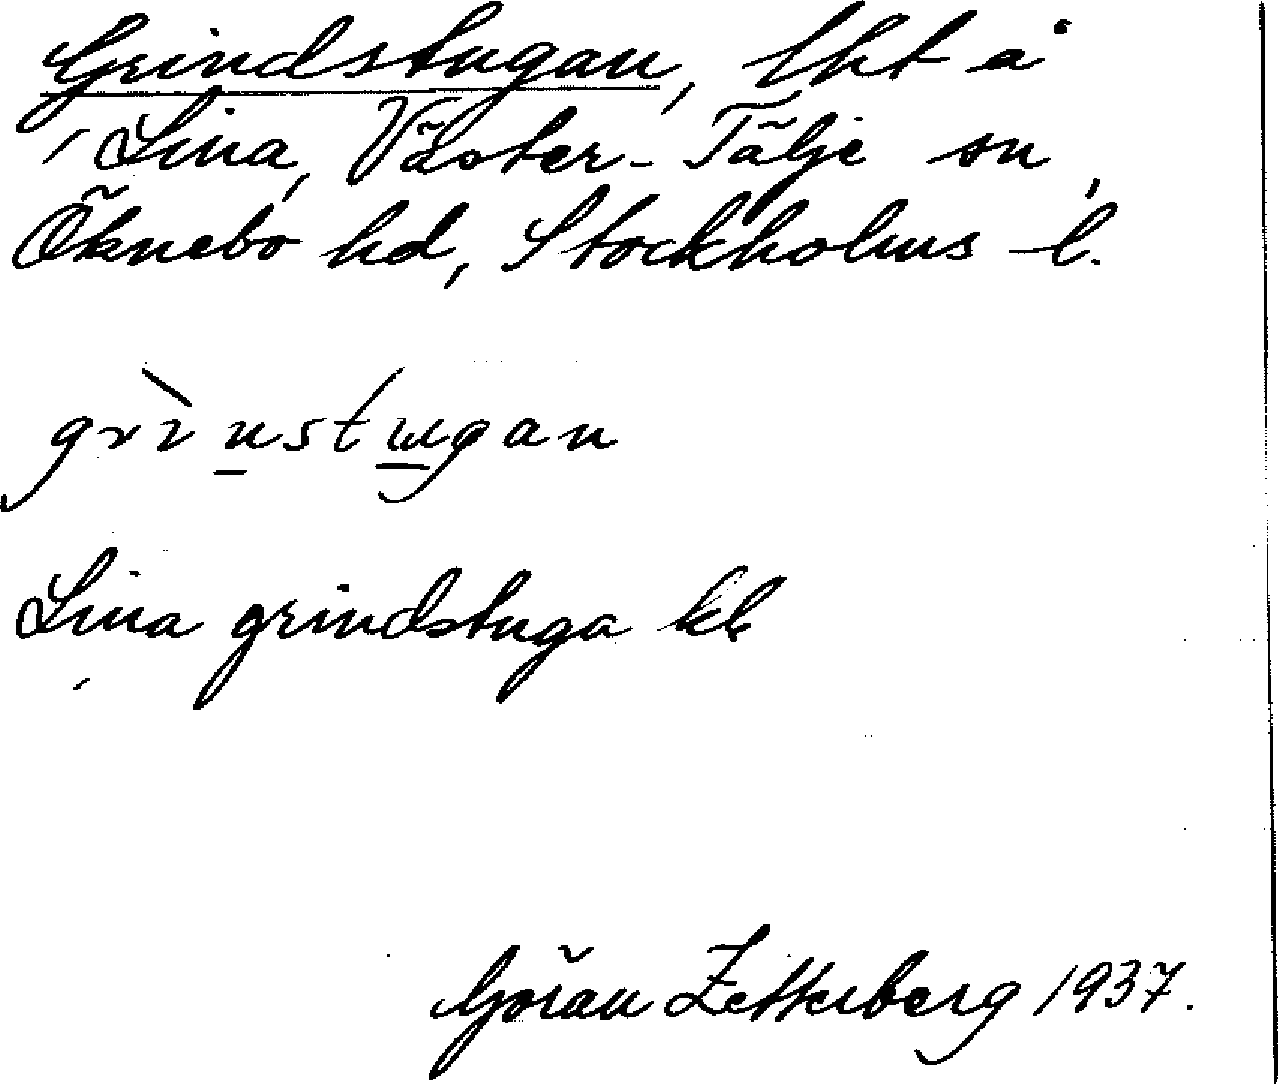 Grindstugan, lht å
Lina, Väster-Tälje sn,
Öknebo hd, Stockholms l.
grìnstugan
Lina grindstuga kb
Göran Zetterberg 1937.